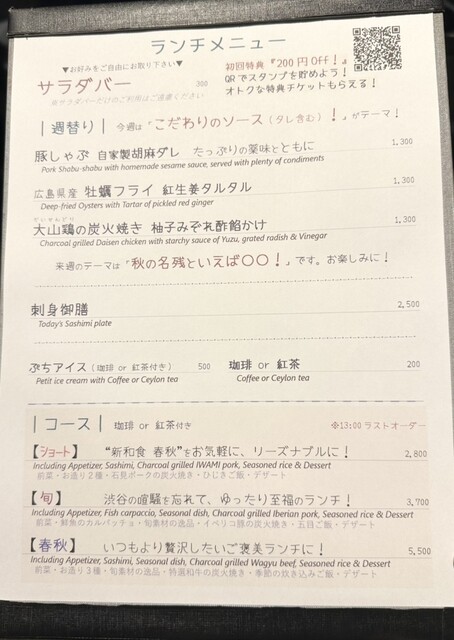 ランチメニュー
▼お好みをご自由にお取り下さい▼
サラダバー 300
※サラダバーだけのご利用はご遠慮ください
初回特典『200円OFF！』
QRでスタンプを貯めよう！
オトクな特典チケットもらえる！
|週替り| 今週は『こだわりのソース(タレ含む)！』がテーマ！
豚しゃぶ 自家製胡麻ダレ たっぷりの薬味とともに 1,300
Pork Shabu-shabu with homemade sesame sauce, served with plenty of condiments
広島県産 牡蠣フライ 紅生姜タルタル 1,300
Deep-fried Oysters with Tartar of pickled red ginger
だいせんどり
大山鶏の炭火焼き 柚子みぞれ酢餡かけ 1,300
Charcoal grilled Daisen chicken with starchy sauce of Yuzu, grated radish & Vinegar
来週のテーマは『秋の名残といえば〇〇！』です。お楽しみに！
刺身御膳 2,500
Today's Sashimi plate
ぷちアイス(珈琲 or 紅茶付き) 500
Petit ice cream with Coffee or Ceylon tea
珈琲 or 紅茶 200
Coffee or Ceylon tea
|コース| 珈琲 or 紅茶付き ※13:00 ラストオーダー
【ショート】 “新和食 春秋”をお気軽に、リーズナブルに！ 2,800
Including Appetizer, Sashimi, Charcoal grilled IWAMI pork, Seasoned rice & Dessert
前菜・お造り2種・石見ポークの炭火焼き・ひじきご飯・デザート
【旬】 渋谷の喧騒を忘れて、ゆったり至福のランチ！ 3,700
Including Appetizer, Fish carpaccio, Seasonal dish, Charcoal grilled Iberian pork, Seasoned rice & Dessert
前菜・鮮魚のカルパッチョ・旬素材の逸品・イベリコ豚の炭火焼・五目ご飯・デザート
【春秋】 いつもより贅沢したいご褒美ランチに！ 5,500
Including Appetizer, Sashimi, Seasonal dish, Charcoal grilled Wagyu beef, Seasoned rice & Dessert
前菜・お造り3種・旬素材の逸品・特選和牛の炭火焼き・季節の炊き込みご飯・デザート